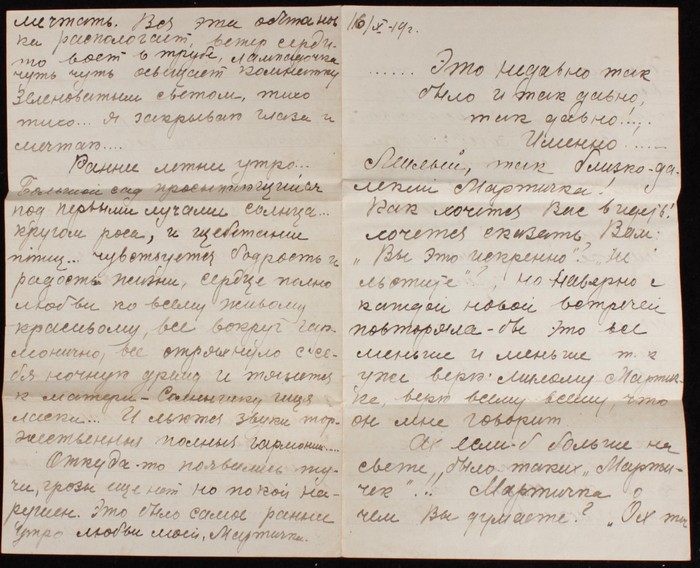 мечтать. Вся эта обстанов
ка распологает, ветер серди-
то воет в трубе, лампадочка
чуть чуть освещает комнатку
зеленоватым светом, тихо
тихо... Я закрываю глаза и
мечтаю....
Раннее летнее утро...
Большой сад просыпающийся
под первыми лучами солнца...
кругом роса, и щебетание
птиц... чувствуется бодрость и
радость жизни, сердце полно
любви ко всему живому
красивому, все вокруг гар
монично, все отряхнуло с се-
бя ночную дрему и тянется
к матери-Солнышку ища
ласки... И льются звуки тор-
жественные полные гармонии....
Откуда-то появились ту-
чи, грозы еще нет но покой на-
рушен. Это было самое раннее
утро любви моей, Мартичка.
16/X-19г.
...... Это недавно так
было и так давно,
так давно!....
Именно......
Милый, так близко-да-
лекий Мартичка!
Как хочется Вас видеть!
хочется сказать Вам:
„Вы это искренно"? „Не
льстите"?, но наверно с
каждой новой встречей
повторяла-бы это все
меньше и меньше т. к
уже верю милому Мартич-
ке, верю всему всему, что
он мне говорит
Ах если-б больше на
свете „было таких „Марти-
чек"!! Мартичка о
чем Вы думаете? „Ох ты